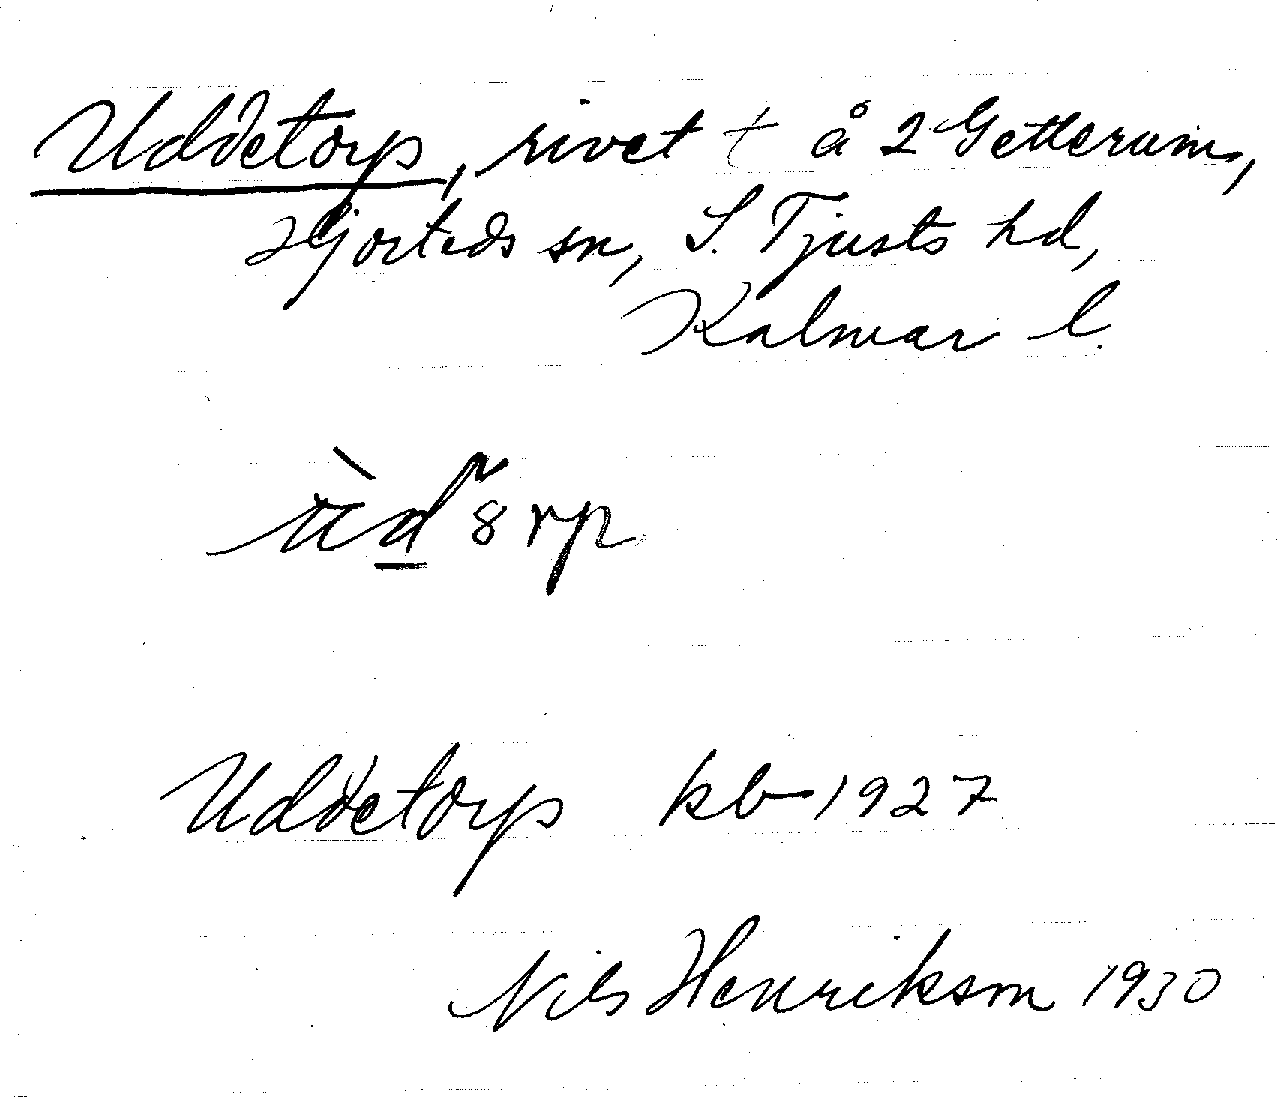 Uddetorp, rivet t å 2 Getterum,
Hjorteds sn, S. Tjusts hd,
Kalmar l.
Uddetorp kb 1927
Nils Henrikson 1930